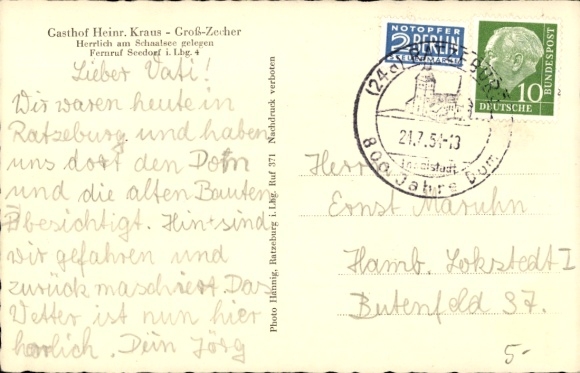 Gasthof Heinr. Kraus - Groß-Zecher
Herrlich am Schaalsee gelegen
Fernruf Seedorf i. Lbg. 4
Lieber Vati!
Wir waren heute in
Ratzeburg und haben
uns dort den Dom
und die alten Bauten
besichtigt. Hin sind
wir gefahren und
zurück maschiert. Das
Wetter ist nun hier
herlich. Dein Jörg
Photo Hannig, Ratzeburg i. Lbg. Ruf 371 Nachdruck verboten
NOTOPFER
2 BERLIN
STEUERMARKE
DEUTSCHE
BUNDESPOST
10
(24a) RATZEBURG
21.7.54-13
Inselstadt
800 Jahre Dom
Herrn
Ernst Maruhn
Hamb. Lokstedt I
Butenfeld 37.
5-